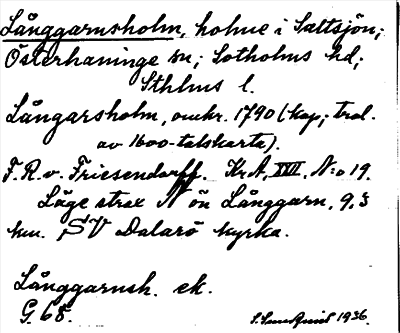 Långgarnsholm, holme i Saltsjön;
Österhaninge sn; Sotholms hd;
Sthlms l.
Långarsholm, omkr. 1790 (kop; trol.
av 1600-talskarta).
F. R. v. Friesendorff. Kr A, XVII, N:o 19.
Läge strax N ön Långgarn, 9.3
km. SV Dalarö kyrka.
Långgarnsh. ek.
G. 68.
1936